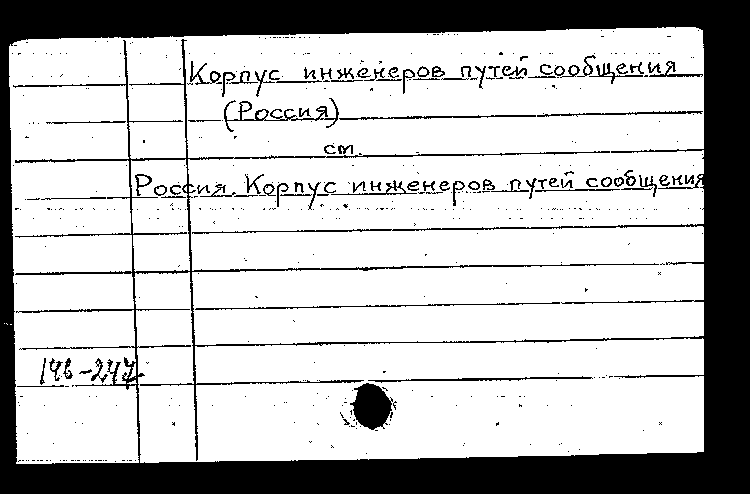 Корпус инженеров путей сообщения
(Россия)
см.
Россия. Корпус инженеров путей сообщения
146-247